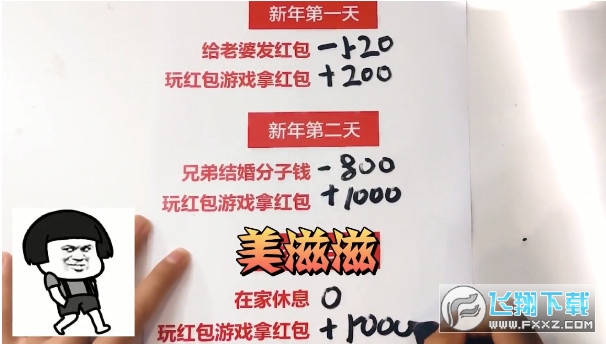 新年第一天
给老婆发红包 -520
玩红包游戏拿红包 +200
新年第二天
兄弟结婚分子钱 -800
玩红包游戏拿红包 +1000
美滋滋
在家休息 0
玩红包游戏拿红包 +1000
飞翔下载
WWW.FXXZ.COM